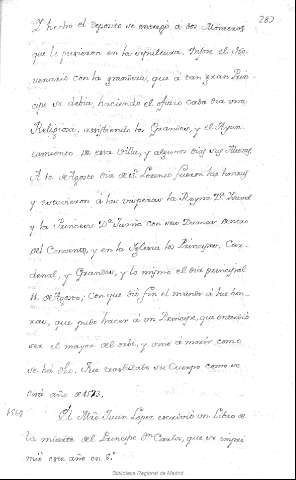 287
Y hecho el deposito se entregò a dos Monteros
que le pusieron en la sepultura. Hizose el No-
venario con la grandeza, que á tan gran Prin-
cipe se debia, haciendo el oficio cada dia una
Religion, asistiendo los Grandes, y el Ayun-
tamiento de esta Villa, y algunos dias sus Altezas.
A 10. de Agosto dia de Sn. Lorenzo fueron las honras
y estuvieron á las visperas la Reyna Da. Isavel
y la Princesa Da. Juana con sus Damas dentro
del Convento, y en la Iglesia los Principes, Car-
denal, y Grandes, y lo mismo el dia principal
11. de Agosto, con que dió fin el á las hon-
ras, que pudo hacer á un Principe, que
ser el mayor del orbe, y vino á morir como
se ha dho. Fue trasladado su Cuerpo como se
dirá año de 1573.
1568 El Mro. Juan Lopez escrivió un Libro de
la muerte del Principe Dn. Carlos, que se impri
mió este año en 8º.
Biblioteca Regional de Madrid